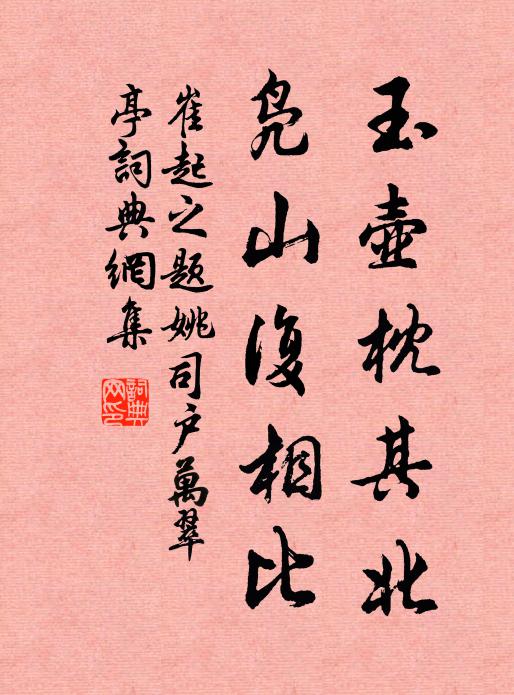 玉壺枕其北
凫山復相比
崔起之题姚司户萬翠
亭詞典網集
詞典
网印